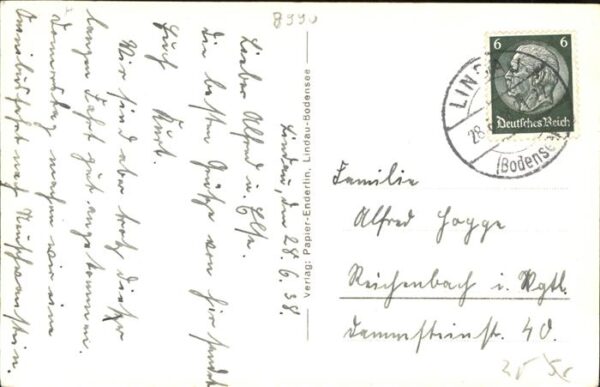 8990
Lindau, den 28.6.38.
Lieber Alfred u. Else.
die besten Grüße von hier sendet
Euch Kurt.
Wir sind aber trotz dieser
langen Fahrt gut angekommen.
Donnerstag machen wir eine
nach Neuschwanstein.
Verlag: Papier-Enderlin, Lindau-Bodensee
6 6
Deutsches Reich
LINDAU
28
(Bodensee)
Familie
Alfred Hogge
Reichenbach i. Vgtl.
40.